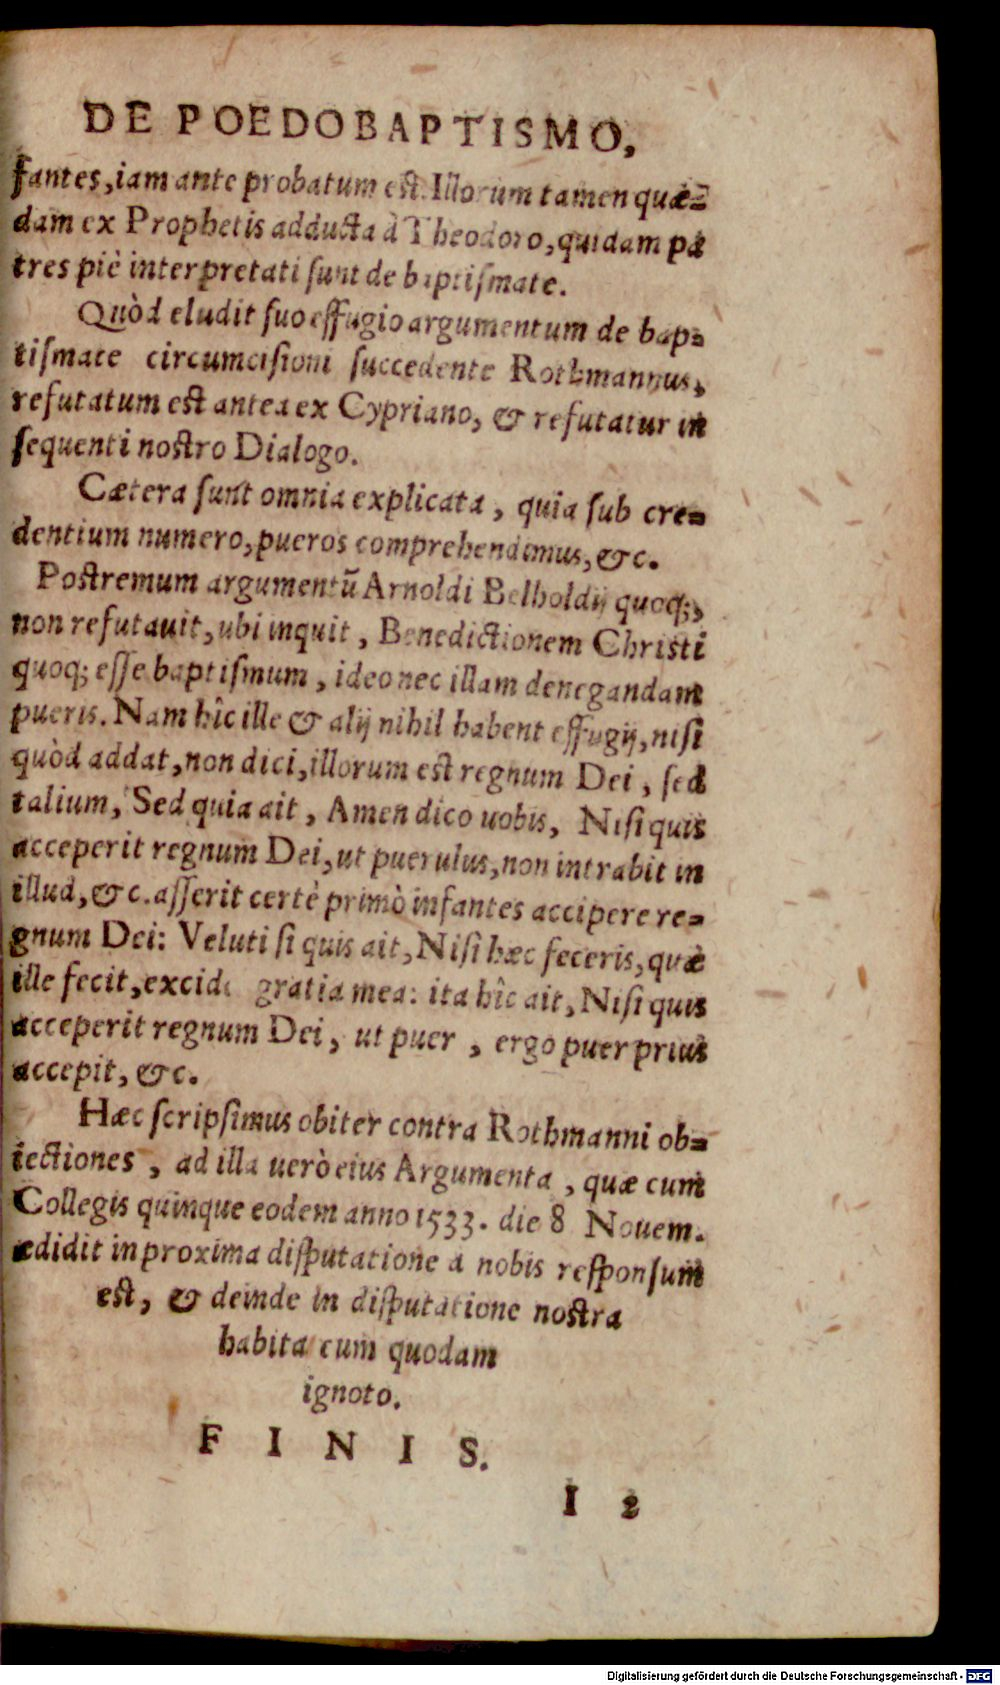 DE POEDOBAPTISMO,
fantes, iam ante probatum est. Illorum tamen quæ-
dam ex Prophetis adducta à Theodoro, quidam pa
tres piè interpretati sunt de baptismate.
Quòd eludit suo effugio argumentum de bap-
tismate circumcisioni succedente Rothmannus,
refutatum est antea ex Cypriano, & refutatur in
sequenti nostro Dialogo.
Cætera sunt omnia explicata, quia sub cre-
dentium numero, pueros comprehendimus, &c.
Postremum argumentũ Arnoldi Belholdij quoq;,
non refutauit, ubi inquit, Benedictionem Christi
quoq; esse baptismum, ideo nec illam denegandam
pueris. Nam hîc ille & alij nihil habent effugij, nisi
quòd addat, non dici, illorum est regnum Dei, sed
talium, Sed quia ait, Amen dico uobis, Nisi quis
acceperit regnum Dei, ut puerulus, non intrabit in
illud, &c. asserit certè primò infantes accipere re-
gnum Dei: Veluti si quis ait, Nisi hæc feceris, quæ
ille fecit, excides gratia mea: ita hîc ait, Nisi quis
acceperit regnum Dei, ut puer, ergo puer prius
accepit, &c.
Hæc scripsimus obiter contra Rothmanni ob-
iectiones, ad illa uerò eius Argumenta, quæ cum
Collegis quinque eodem anno 1533. die 8 Nouem.
ædidit in proxima disputatione a nobis responsum
est, & deinde in disputatione nostra
habita cum quodam
ignoto.
F I N I S.
I 2
Digitalisierung gefördert durch die Deutsche Forschungsgemeinschaft - DFG